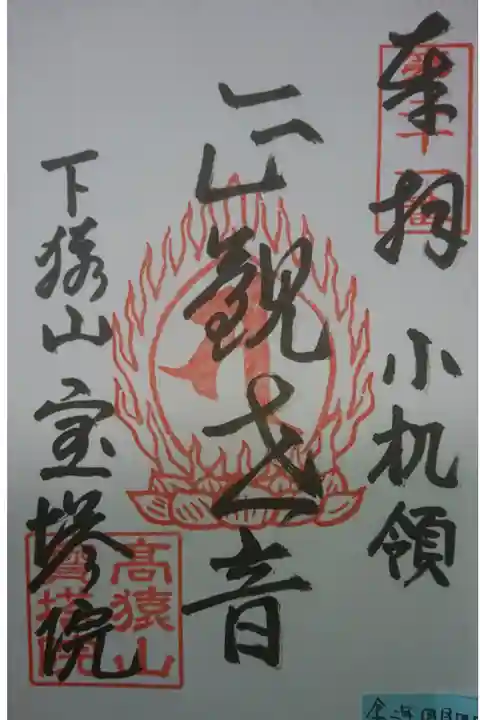 奉拝 小机領
正観世音
下猿山 宝塔院
高猿山
寶塔院